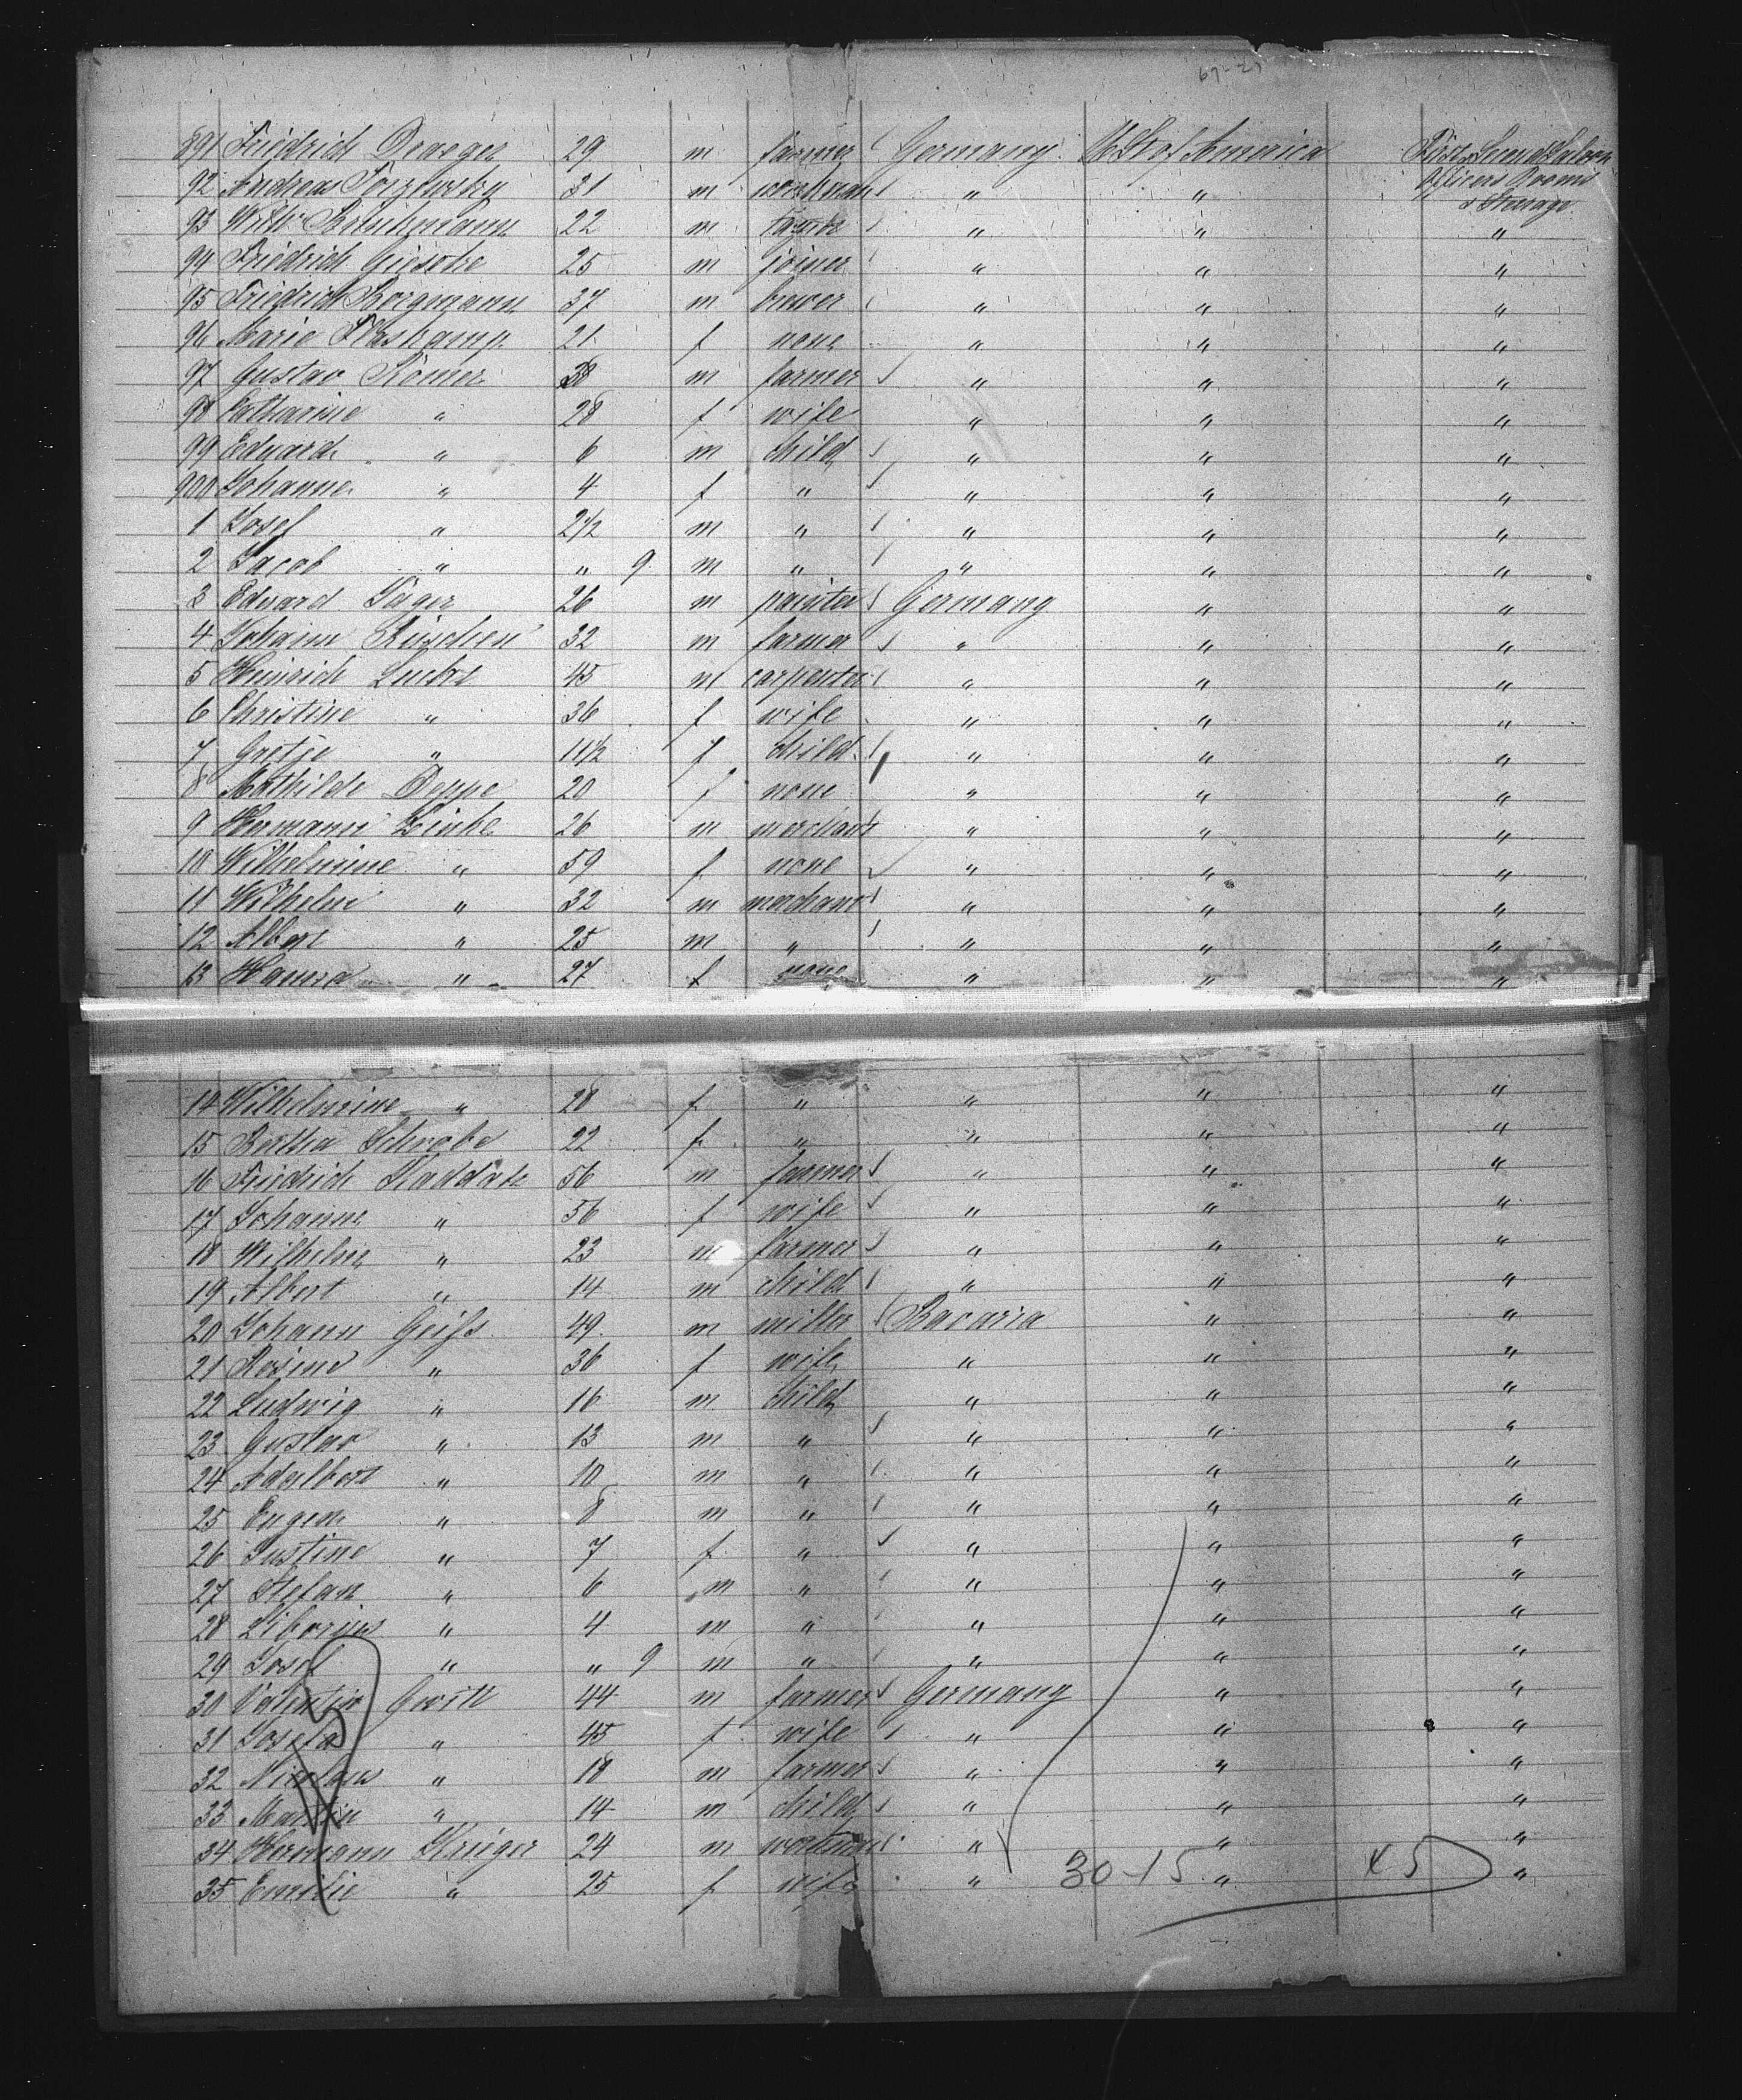 891 Friedrich Draeger 29 m farmer Germany U.St. of America First, Second Saloon
Officers Rooms
& Steerage
92 Andreas 31 m workman " " "
93 Wilh. 22 m " " "
94 Friedrich Gieseke 25 m joiner " " "
95 Friedrich Borgmann 37 m brewer " " "
96 Marie Flaskamp 21 f none " " "
97 Gustav Römer 38 m farmer " " "
98 Catharine " 28 f wife " " "
99 Eduard " 6 m child " " "
900 Johanne " 4 f " " " "
1 Josef " 2 1/2 m " " " "
2 Jacob " " 9 m " " " "
3 Edward Jäger 26 m painter Germany " "
4 Johann Büschen 32 m farmer " " "
5 Heinrich 45 m carpenter " " "
6 Christine " 36 f wife " " "
7 Gretje " 11 1/2 f child " " "
8 Mathilde Deppe 20 f none " " "
9 Hermann Zinke 26 m merchant " " "
10 Wilhelmine " 59 f none " " "
11 Wilhelm " 32 m merchant " " "
12 Albert " 25 m " " " "
13 Hanna " 27 f none " " "
14 Wilhelmine " 28 f " " " "
15 Bertha Schwabe 22 f " " " "
16 Friedrich Raddatz 56 m farmer " " "
17 Johanne " 56 f wife " " "
18 Wilhelm " 23 m farmer " " "
19 Albert " 14 m child " " "
20 Johann Geiss 49 m miller Bavaria " "
21 Rosine " 36 f wife " " "
22 Ludwig " 16 m child " " "
23 Gustav " 13 m " " " "
24 Adalbert " 10 m " " " "
25 Eugen " 8 m " " " "
26 Justine " 7 f " " " "
27 Stefan " 6 m " " " "
28 Liborius " 4 m " " " "
29 Josef " " 9 m " " " "
30 Valentin Gwitt 44 m farmer Germany " "
31 Josefa " 45 f wife " " "
32 Nicolaus " 18 m farmer " " "
33 Martin " 14 m child " " "
34 Hermann Krüger 24 m workman " " "
35 Emilie " 25 f wife " " "
30-15 45